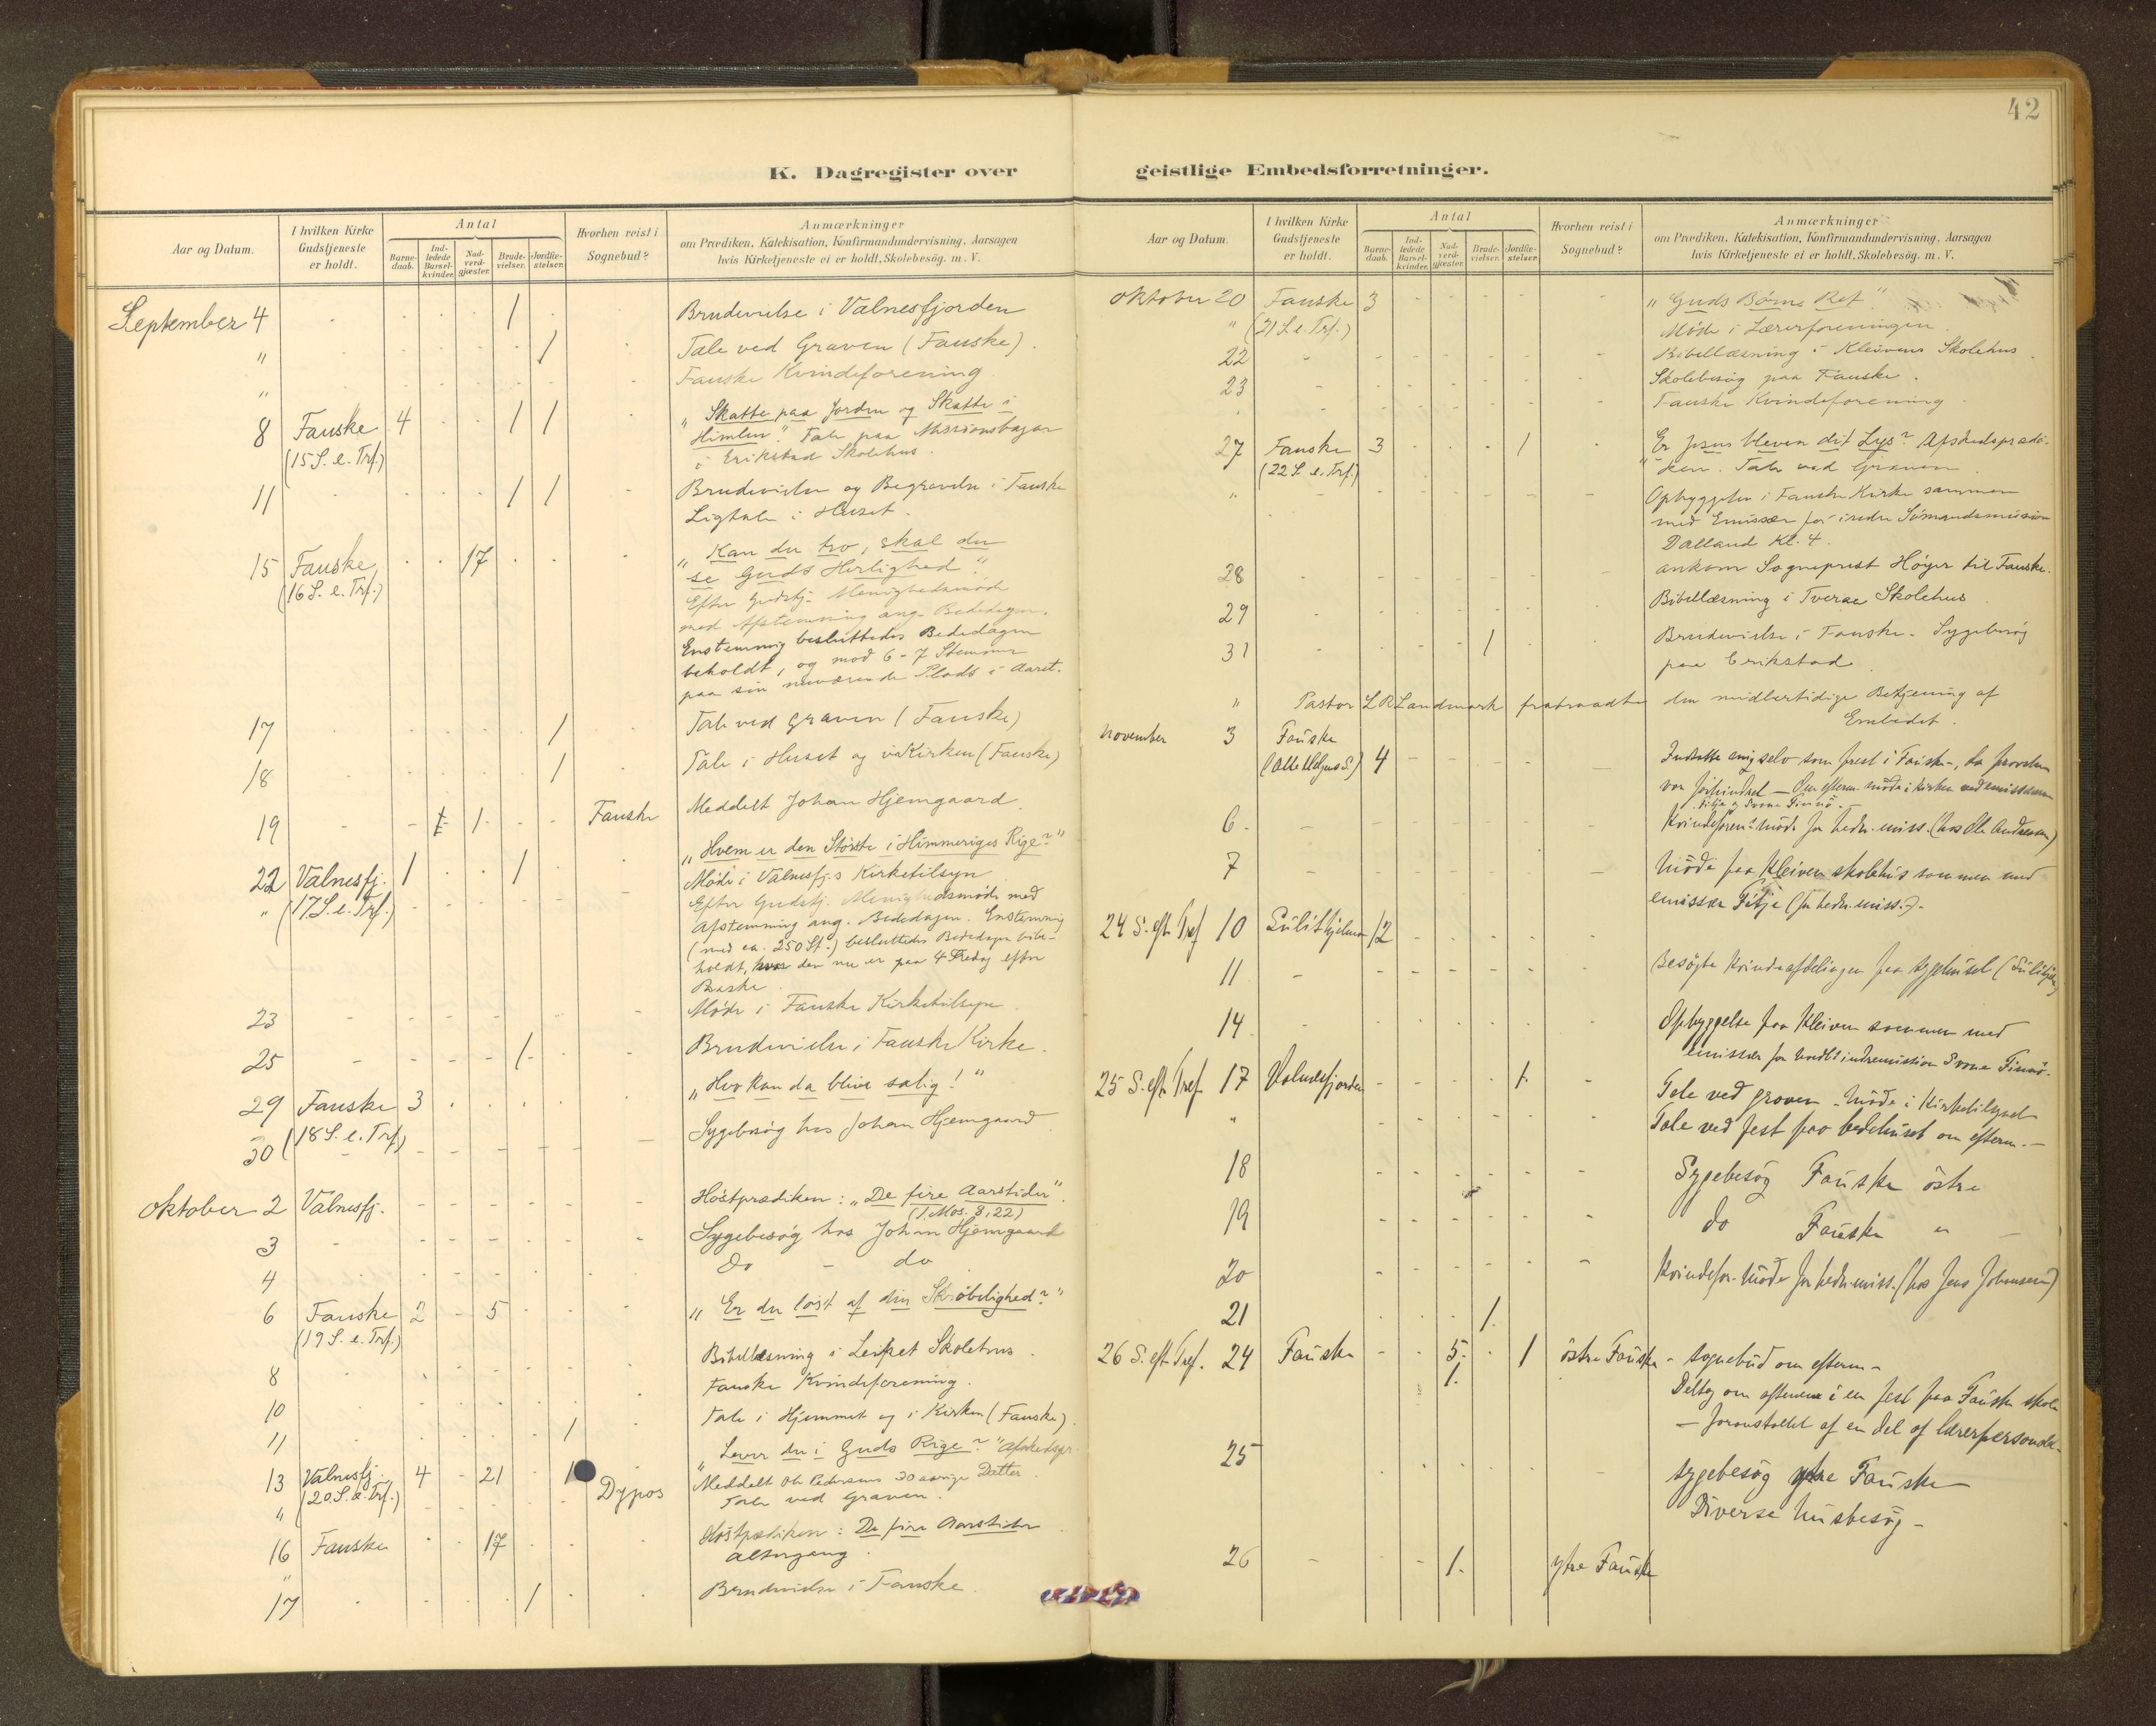 42
K. Dagregister over geistlige Embedsforretninger.
Aar og Datum. I hvilken Kirke Gudstjeneste er holdt. Antal Barnedaab. Indledede Barselkvinder. Nadverdgjæster. Brudevielser. Jordfæstelser. Hvorhen reist i Sognebud? Anmærkninger om Prædiken, Katekisation, Konfirmandundervisning, Aarsagen hvis Kirketjeneste ei er holdt, Skolebesøg. m. V.
September 4 1 Brudevielse i Valnesfjorden
" 1 Tale ved Graven (Fauske).
" Fauske Kvindeforening
8 Fauske 4 1 1 "Skatte paa Jorden og Skatte i
(15 S. e. Trf.) Himlen". Tale paa Missionsbazar
i Erikstad Skolehus.
11 1 1 Brudevielse og Begravelse i Fauske
Ligtale i Huset.
15 Fauske 17 "Kan du tro, skal du
(16 S. e. Trf.) se Guds Herlighed".
Efter Gudstj. Menighedsmøde
med Afstemning ang. Bededagen.
Enstemmig besluttedes Bededagen
beholdt, og mod 6-7 Stemmer
paa sin nuværende Plads i Aaret.
17 1 Tale ved Graven (Fauske)
18 1 Tale i Huset og i Kirken (Fauske)
19 1 Fauske Meddelt Johan Hjemgaard.
22 Valnesfj. 1 1 "Hvem er den Største i Himmeriges Rige?"
" (17 S. e. Trf.) Møde i Valnesfj.s Kirketilsyn
Efter Gudstj. Menighedsmøde med
Afstemning ang. Bededagen. Enstemmig
(med ca. 250 St.) besluttedes Bededagen bibe-
holdt, hvor den nu er paa 4 Fredag efter
Paaske.
23 Møde i Fauske Kirketilsyn
25 1 Brudevielse i Fauske Kirke.
29 Fauske 3 "Hvo kan da blive salig!"
(18 S. e. Trf.)
30 Sygebesøg hos Johan Hjemgaard
Oktober 2 Valnesfj. Høstprædiken: "De fire Aarstider".
(1 Mos. 8,22)
3 Sygebesøg hos Johan Hjemgaard
4 Do - do
6 Fauske 2 5 "Er du løst af din Skrøbelighed?"
(19 S. e. Trf.)
8 Bibellæsning i Leifset Skolehus.
10 Fauske Kvindeforening.
11 1 Tale i Hjemmet og i Kirken (Fauske)
13 Valnesfj. 4 21 1 "Lever du i Guds Rige?" Afskedspr.
" (20 S. e. Trf.) Dypos Meddelt Ole Pedersens 30 aarige Datter.
Tale ved Graven.
16 Fauske 17 Høstprædiken: De fire Aarstider
" Altergang.
17 1 Brudevielse i Fauske.
Aar og Datum. I hvilken Kirke Gudstjeneste er holdt. Antal Barnedaab. Indledede Barselkvinder. Nadverdgjæster. Brudevielser. Jordfæstelser. Hvorhen reist i Sognebud? Anmærkninger om Prædiken, Katekisation, Konfirmandundervisning, Aarsagen hvis Kirketjeneste ei er holdt, Skolebesøg. m. V.
Oktober 20 Fauske 3 "Guds Børns Ret".
" (21 S. e. Trf.) Møde i Lærerforeningen.
22 Bibellæsning i Kleivens Skolehus.
23 Skolebesøg paa Fauske.
Fauske Kvindeforening.
27 Fauske 3 1 "Er Jesus bleven dit Lys?" Afskedspræde-
(22 S. e. Trf.) ken. Tale ved Graven
" Opbyggelse i Fauske Kirke sammen
med Emissær for indre Sømandsmission
Dalland Kl. 4.
28 Ankom Sogneprest Høyer til Fauske.
29 Bibellæsning i Tveraa Skolehus.
31 1 Brudevielse i Fauske. Sygebesøg
paa Erikstad
" Pastor L R Landmark fratraadte den midlertidige Betjening af
Embedet.
November 3 Fauske Indsatte mig selv som prest i Fauske, da provsten
(Alle Helgens S.) 4 var forhindret - Om efterm. møde i kirken ved emissærerne
Fitje og Svane Finnø.
6 Kvindeforen. møde for hedn. miss. (hos Ole Andreassen)
7 Møde paa Kleiven skolehus sammen med
emissær Fitje (for hedn. miss.).
24 S. eft. Tref 10 Sulitjelma 12
11 Besøgte kvindeafdelingen paa sygehuset (Sulitjelma)
14 Opbyggelse paa Kleiven sammen med
emissær for indremission Svane Finnø.
25 S. eft. Tref. 17 Valnesfjorden 1 Tale ved graven. Møde i Kirketilsynet
" Tale ved fest paa bedehuset om efterm.
18 Sygebesøg Fauske østre
19 do Fauske "
20 Kvindefor. møde for hedn. miss. (hos Jens Johansen)
21 1
26 S. eft. Tref. 24 Fauske 5 1 østre Fauske - sognebud om efterm.
1 Deltog om aftenen i en fest paa Fauske skole
- foranstaltet af en del af lærerpersonalet
25 sygebesøg ytre Fauske
Diverse husbesøg
26 1 ytre Fauske